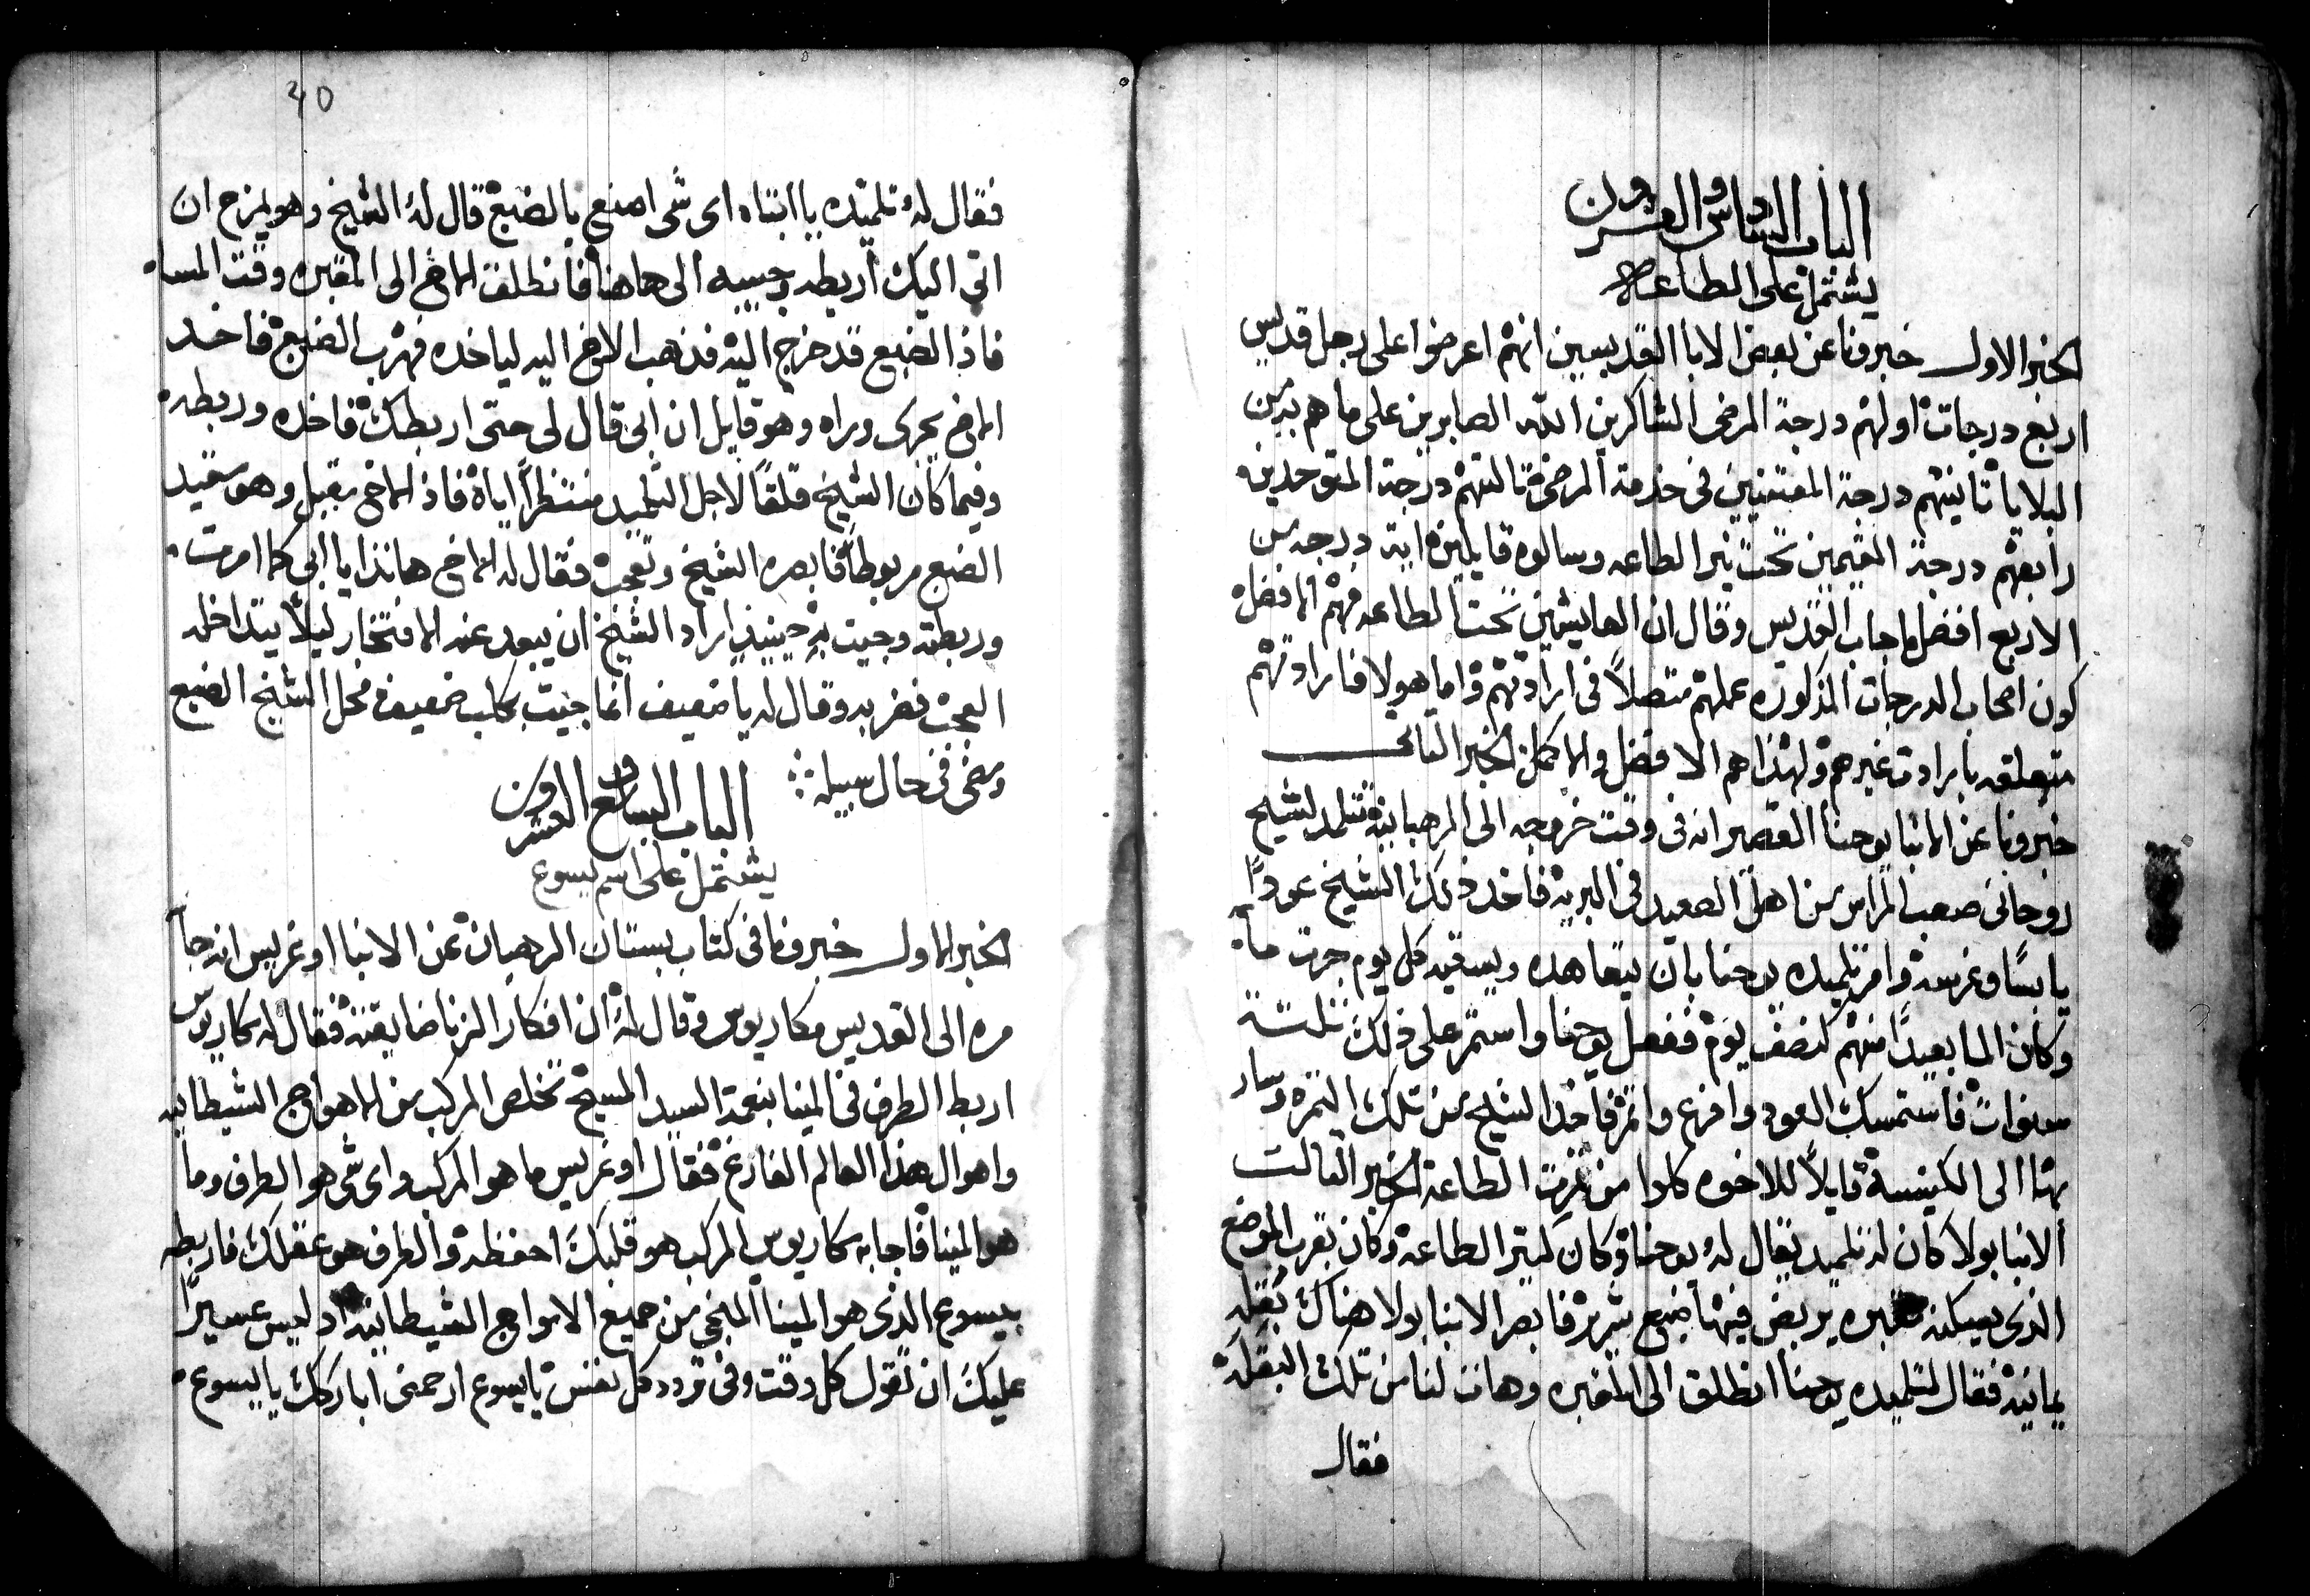 الباب السادس والعشرون
يشتمل على الطاعة
الخبر الاول خبرونا عن بعض الابا القديسين انهم اعرضوا على رجل قديس
اربع درجات اولهم درجة المرضى الشاكرين الله الصابرين على ما هم به من
البلايا ثانيتهم درجة المعتنيين فى خدمة المرضى ثالثتهم درجة المتوحدين
رابعتهم درجة المقيمين تحت نير الطاعه وسالوه قايلين اية درجه من
الاربع افضل فاجاب القديس وقال ان العايشين تحت الطاعه فهم الافضل
كون اصحاب الدرجات المذكوره عملهم متصلاً فى ارادتهم واما هولا فارادتهم
متعلقه بارادت غيرهم ولهذا هم الافضل والاكمل الخبر الثانى
خبرونا عن الانبا يوحنا القصير انه فى وقت خروجه الى الرهبانية تتلمد لشيخ
روحانى صعب المراس من اهل الصعيد فى البرية فاخد ذلك الشيخ عودًا
يابسًا وغرسه وامر تلميده يوحنا بان يتعاهده ويسقيه كل يوم جرت ماء
وكان الما بعيدًا منهم كنصف يوم ففعل يوحنا واستمر على ذلك تلتة
سنوات فاستمسك العود وافرع واثمر فاخذ الشيخ من تلك الثمره وسار
بها الى الكنيسة قايلاً للاخوه كلوا من ثمرت الطاعة الخبر الثالث
الانبا بولا كان له تلميد يقال له يوحنا وكان كثير الطاعة وكان بقرب الموضع
الذى يسكنه مقبره يربض فيها ضبع شرير فابصر الانبا بولا هناك بقله
يمانية فقال لتلميده يوحنا انطلق الى المقبره وهات لنا من تلك البقلة
فقال
40
فقال له تلميده يا ابتاه اى شى اصنع بالضبع قال له الشيخ وهو يمزح ان
اتى اليك اربطه وجيبه الى هاهنا فانطلق الاخ الى المقبره وقت المساء
فاذ الضبع قد خرج اليه فذهب الاخ اليه لياخده فهرب الضبع فاخد
الاخ يجرى وراه وهو قايل ان ابى قال لى حتى اربطك فاخده وربطه
وفيما كان الشيخ قلقًا لاجل التلميد منتظراً اياه فاذ الاخ مقبل وهو مقيد
الضبع مربوطاً فابصره الشيخ وتعجب فقال له الاخ هانذا يا ابى كما امرت
وربطته وجيت به حينيذ اراد الشيخ ان يبعد عنه الافتخار ليلاً يتداخله
العجب فضربه وقال له يا ضعيف انما جيت بكلب ضعيف فحل الشيخ الضبع
ومضى فى حال سبيله
الباب السابع والعشرون
يشتمل على اسم يسوع
الخبر الاول خبرونا فى كتاب بستان الرهبان عن الانبا اوغريس انه جا
مره الى القديس مكاريوس وقال له ان افكار الزنا ضايقته فقال له مكاريوس
اربط الطرف فى المينا بنعمة السيد المسيح تخلص المركب من الاهواج الشيطانيه
واهوال هذا العالم الفارغ فقال اوغريس ما هو المركب واى شى هو الطرف وما
هو المينا فاجابه مكاريوس المركب هو قلبك احفظه والطرف هو عقلك فاربطه
بيسوع الذى هو المينا المنجى من جميع الامواج الشيطانيه اد ليس عسيرًا
عليك ان تقول كل وقت وفى تردد كل نفس يا يسوع ارحمنى اباركك يا يسوع